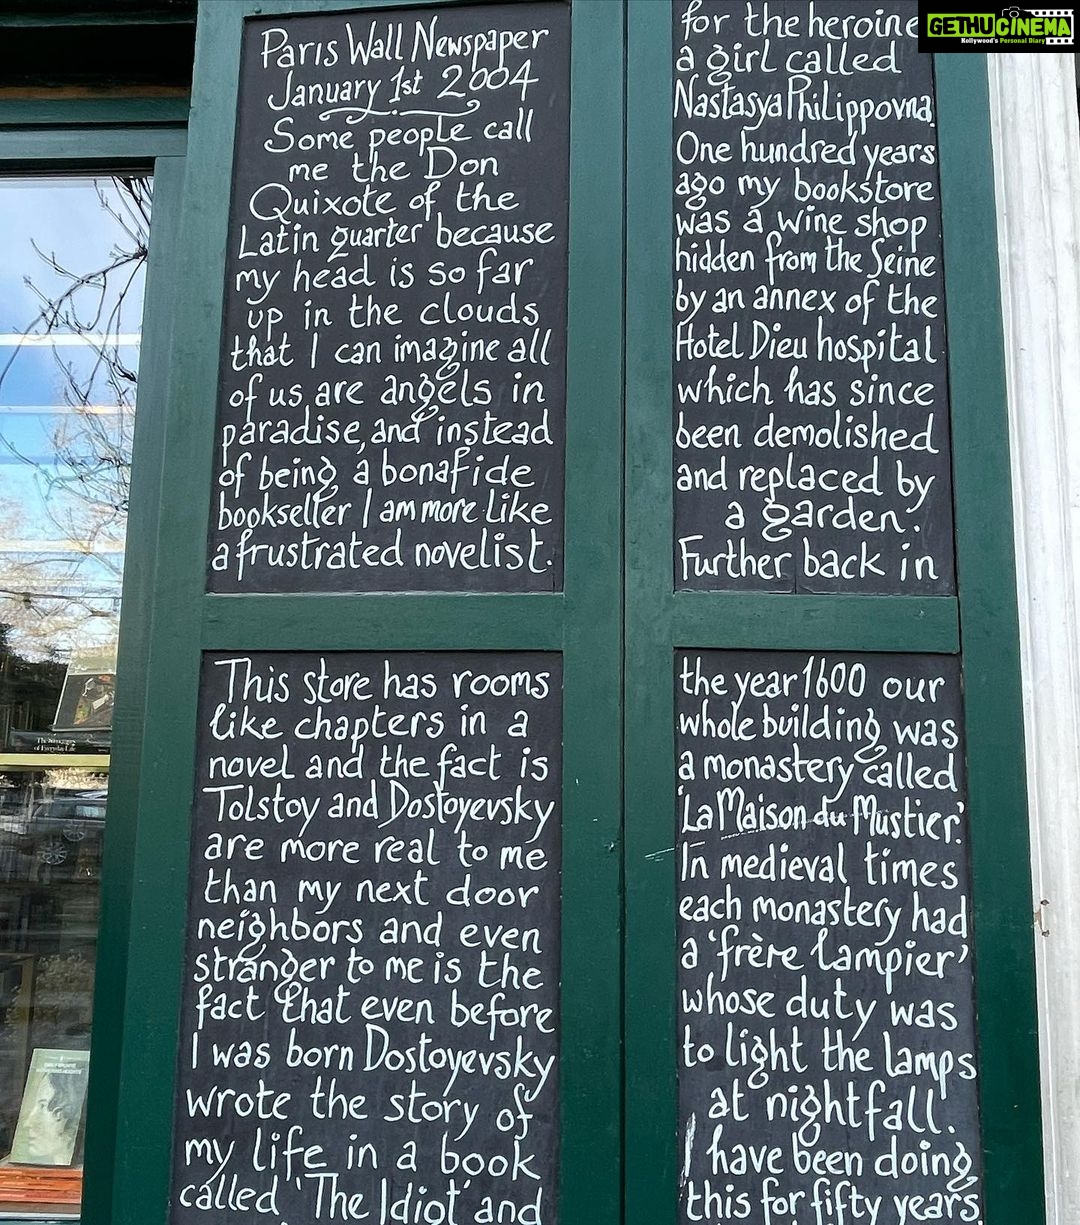 Paris Wall Newspaper
January 1st 2004
Some people call
me the Don
Quixote of the
Latin quarter because
my head is so far
up in the clouds
that I can imagine all
of us are angels in
paradise, and instead
of being a bonafide
bookseller I am more like
a frustrated novelist.
This store has rooms
like chapters in a
novel and the fact is
Tolstoy and Dostoyevsky
are more real to me
than my next door
neighbors and even
stranger to me is the
fact that even before
I was born Dostoyevsky
wrote the story of
my life in a book
called 'The Idiot' and
for the heroine
a girl called
Nastasya Philippovna.
One hundred years
ago my bookstore
was a wine shop
hidden from the Seine
by an annex of the
Hotel Dieu hospital
which has since
been demolished
and replaced by
a garden.
Further back in
the year 1600 our
whole building was
a monastery called
'La Maison du Mustier.'
In medieval times
each monastery had
a 'frère lampier'
whose duty was
to light the lamps
at nightfall.
I have been doing
this for fifty years
GETHU CINEMA
Kollywood's Personal Diary
of Everyday Life